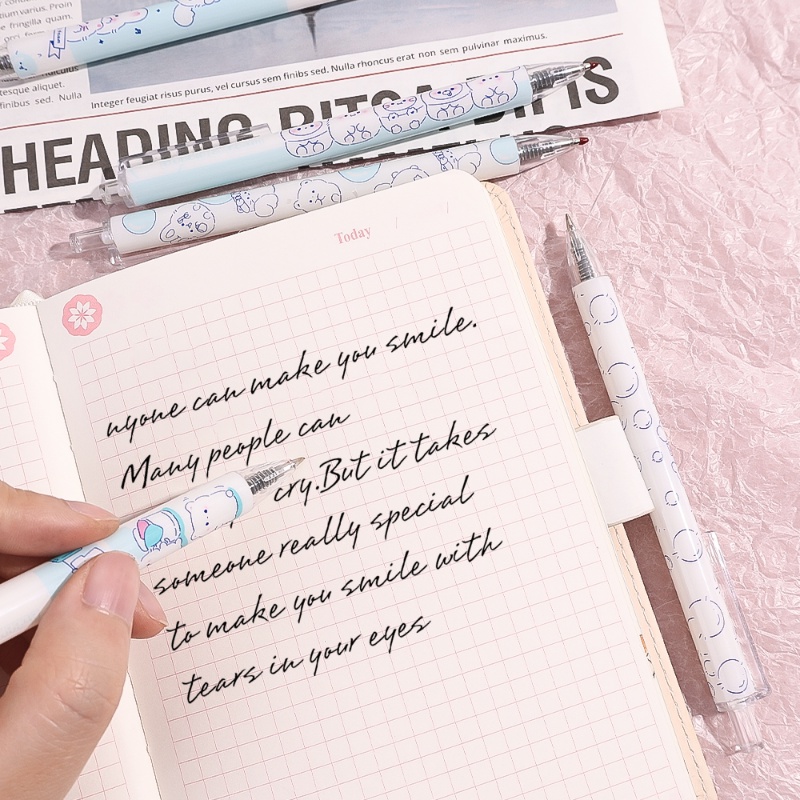 Integer feugiat risus purus, vel cursus sem finibs sed. Nulla rhoncus erat non sem pulvinar maximus.
HEADING
Today
nyone can make you smile.
Many people can
cry.But it takes
someone really special
to make you smile with
tears in your eyes